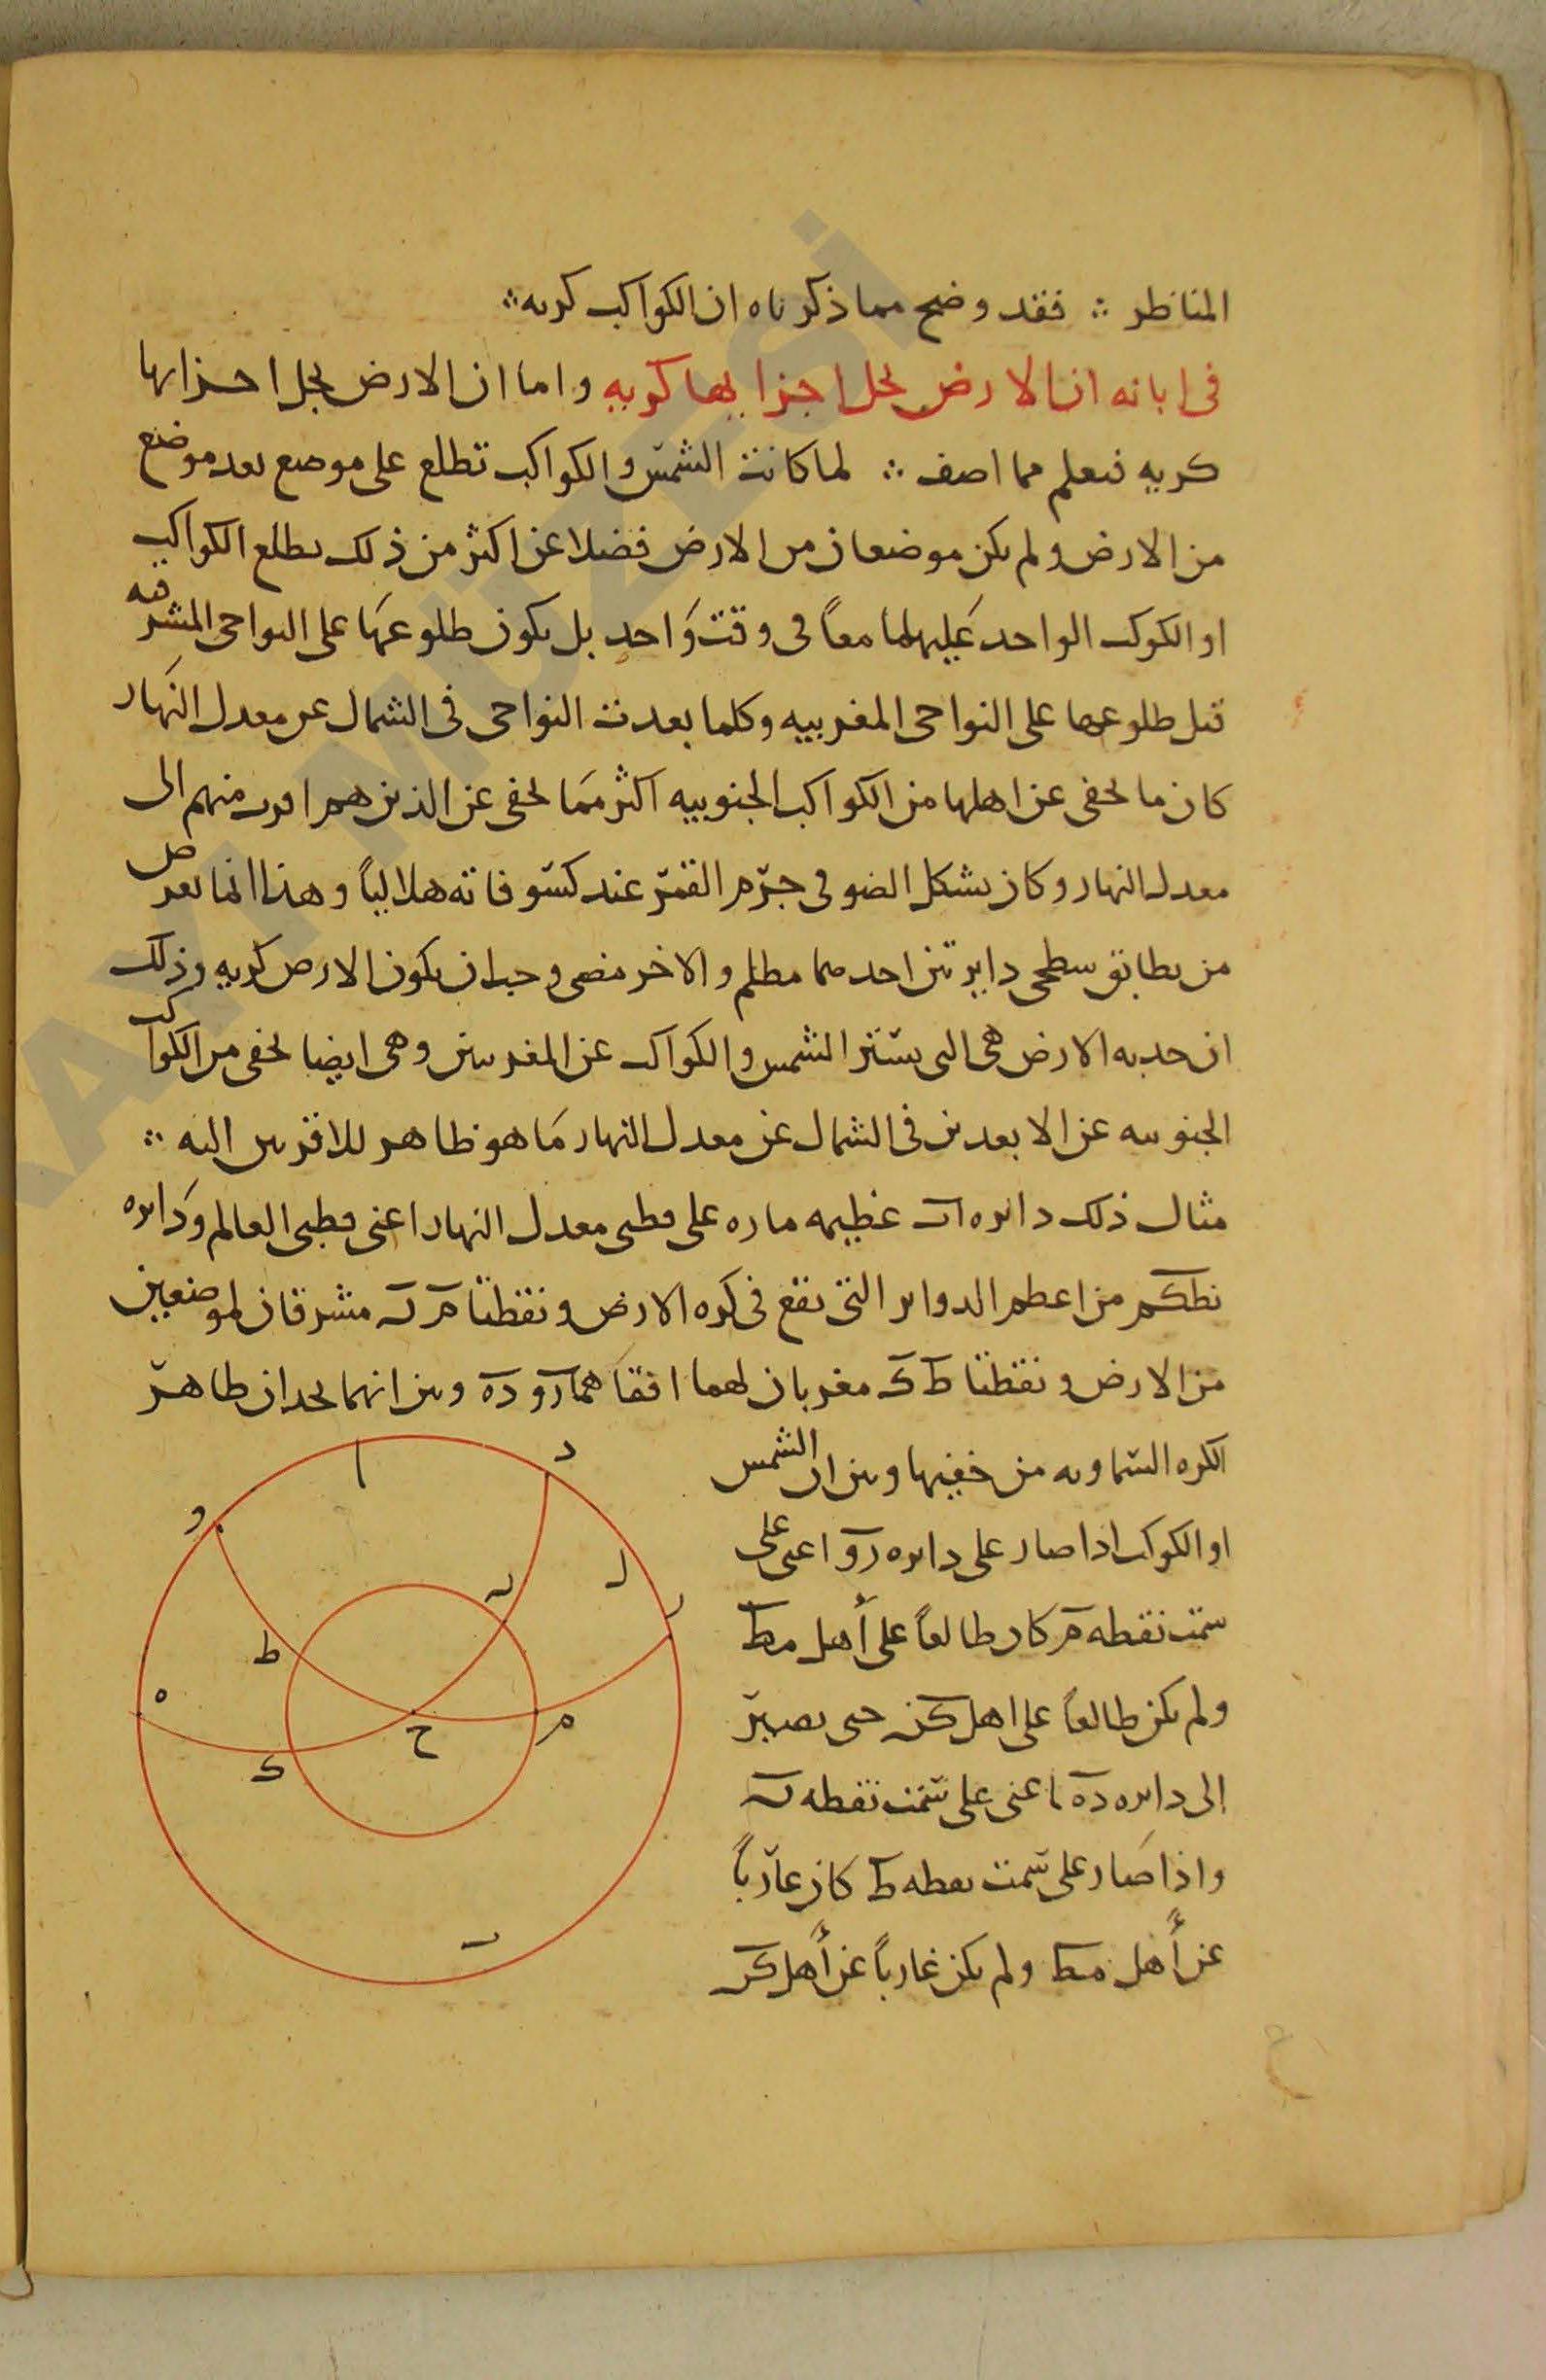 المناظر ؞ فقد وضح مما ذكرناه ان الكواكب كريه ؞
في ابانه ان الارض بجل اجزايها كريه واما ان الارض بجل اجزايها
كريه فيعلم مما اصف ؞ لما كانت الشمس والكواكب تطلع على موضع بعد موضع
من الارض ولم يكن موضعان من الارض فضلا عن اكثر من ذلك يطلع الكواكب
او الكوكب الواحد عليهما معاً في وقت واحد بل يكون طلوعها على النواحي المشرقيه
قبل طلوعها على النواحي المغربيه وكلما بعدت النواحي في الشمال عن معدل النهار
كان ما يخفى عن اهلها من الكواكب الجنوبيه اكثر مما يخفى عن الذين هم اقرب منهم الى
معدل النهار وكان يشكل الضو في جرم القمر عند كسوفاته هلالياً وهذا انما يعرض
من تطابق سطحي دايرتين احدهما مظلم والاخر مضي وجب ان يكون الارض كريه وذلك
ان حدبه الارض هي التي يستتر الشمس والكواكب عن المغربيين وهي ايضا يخفى من الكواكب
الجنوبيه عن الابعدين في الشمال عن معدل النهار ما هو ظاهر للاقربين اليه ؞
مثال ذلك دايره اب عظيمه ماره على قطبي معدل النهار اعني قطبي العالم ودايره
نطكم من اعظم الدواير التي تقع في كره الارض ونقطتا م ن مشرقان لموضعين
من الارض ونقطتا ط ك مغربان لهما افقاهما رو ده وبين انهما يحدان ظاهر
الكره السماويه من خفيها وبين ان الشمس
او الكوكب اذا صار على دايره رو اعني على
سمت نقطه م كان طالعاً على أهل مط
ولم يكن طالعاً على اهل كن حتى يصير
الى دايره ده اعني على سمت نقطه ن
واذا صار على سمت نقطه ط كان غارباً
عن أهل مط ولم يكن غارباً عن أهل كن
ا
د
و
ل
ر
ن
ط
ه
م
ح
ك
ب